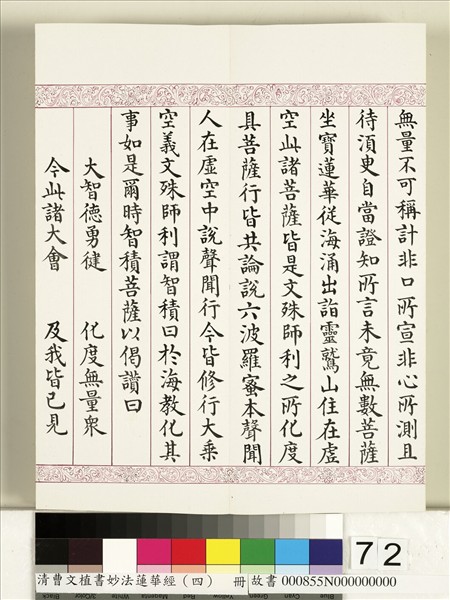 無量不可稱計非口所宣非心所測且
待須臾自當證知所言未竟無數菩薩
坐寶蓮華從海涌出詣靈鷲山住在虛
空此諸菩薩皆是文殊師利之所化度
具菩薩行皆共論說六波羅蜜本聲聞
人在虛空中說聲聞行今皆修行大乘
空義文殊師利謂智積曰於海教化其
事如是爾時智積菩薩以偈讚曰
大智德勇健 化度無量衆
今此諸大會 及我皆已見
72
清曹文植書妙法蓮華經(四) 冊 故書 000855N000000000